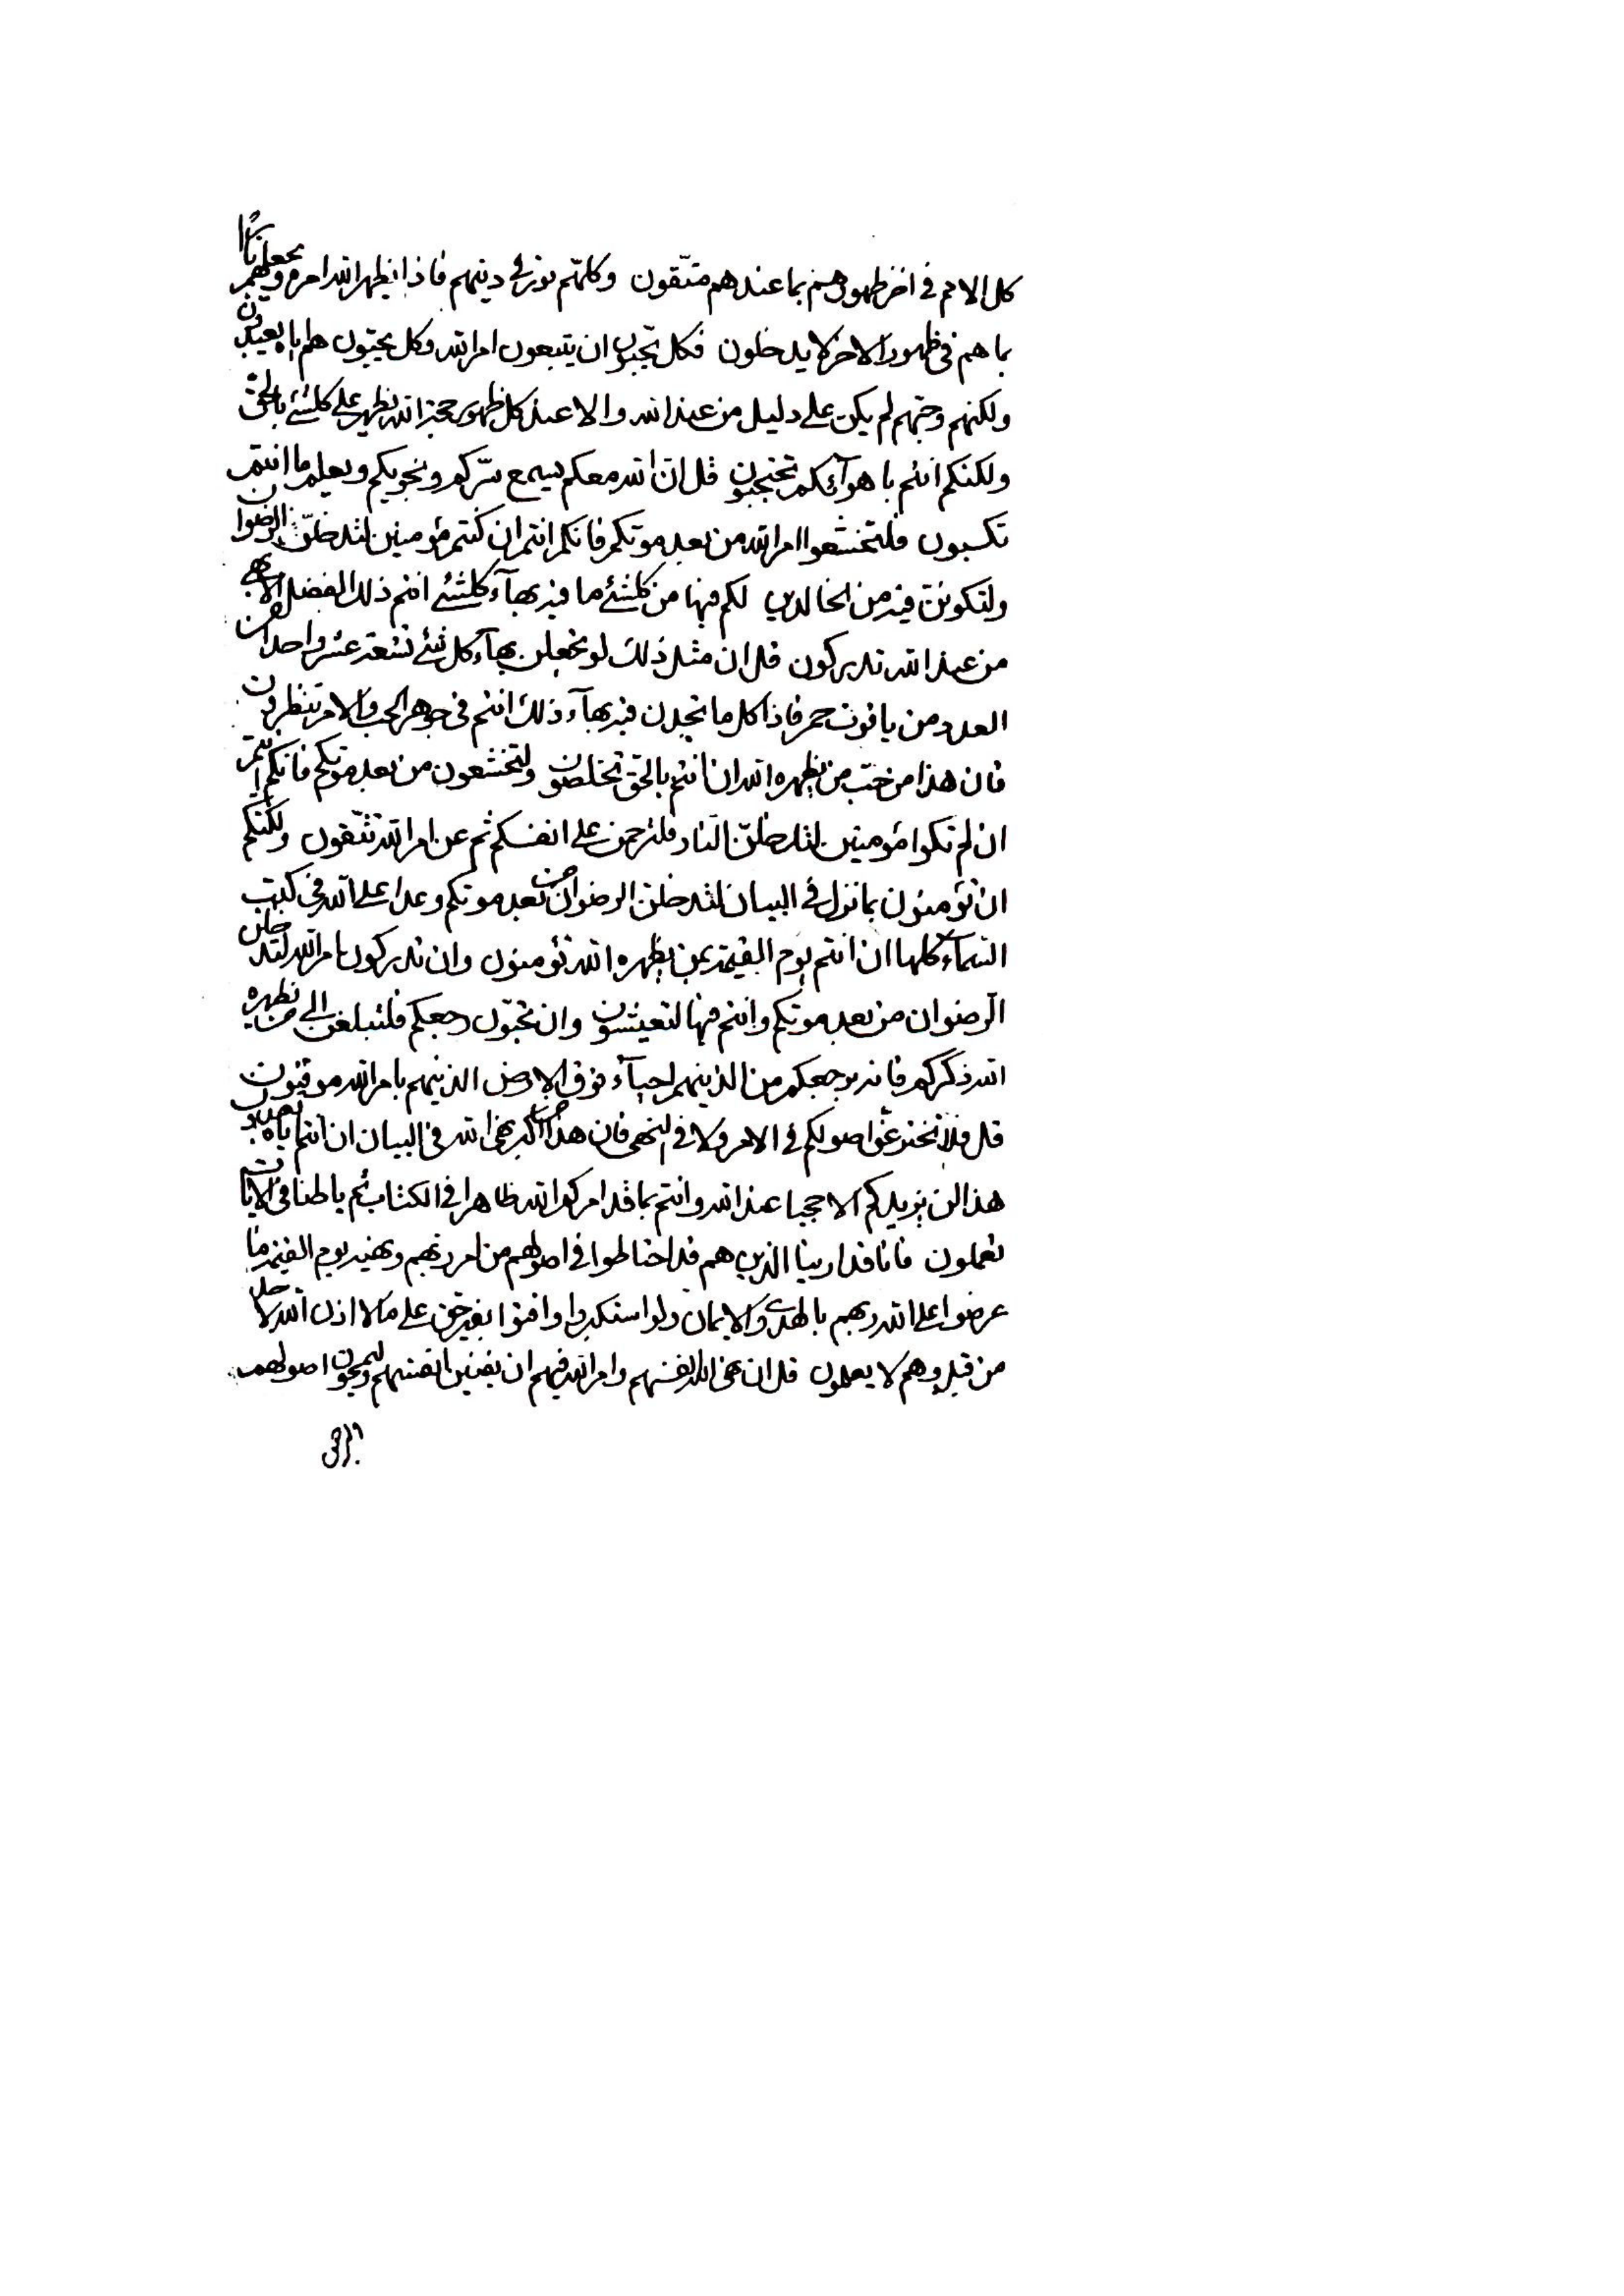 كل الامم في اخر ظهورهم بما عندهم متقون وكلهم نور في دينهم فاذا يظهر الله امره ويجعلهم نارا
بما هم في ظهور الاخر لا يدخلون فكل يحبون ان يتبعون امر الله وكل يحبون هم اياه يعبدون
ولكنهم وحبهم لم يكن على دليل من عند الله والا عند كل ظهور حجة الله يظهر على كلشئ بالحق
ولكنكم انتم باهوآئكم تحتجبون قل ان الله معكم يسمع سركم ونجويكم ويعلم ما انتم
تكسبون فلتخشعوا امر الله من بعد موتكم فانكم انتم ان كنتم مؤمنين لتدخلن الرضوان
ولتكونن فيه من الخالدين لكم فيها من كلشئ ما فيه بهآء كلشئ انتم ذلك الفضل الابهى
من عند الله تدركون قل ان مثل ذلك لو نجعلن بهآء كل شئ تسعة عشر واحدا من
العدد من ياقوت حمر فاذا كل ما تجدن فيه بهآء ذلك انتم في جوهر الحب والامر تنظرون
فان هذا من حب من يظهره الله ان انتم بالحق تخلصون ولتخشعون من بعد موتكم فانكم انتم
ان لم تكوا مؤمنين لتدخلن النار فلترحمن على انفسكم ثم عن امر الله تتقون ولكنكم
ان تؤمنون بما نزل في البيان لتدخلن الرضوان من بعد موتكم وعدا على الله في كتب
السمآء كلها ان انتم يوم القيمة بمن يظهره الله تؤمنون وان تدركون امر الله لتدخلن
الرضوان من بعد موتكم وانتم فيها لتعيشون وان تحبون رجعكم فلتبلغن الى من يظهره
الله ذكركم فانه يرجعكم من الذينهم احيآء فوق الارض الذينهم بامر الله موقنون
قل فلا تخترعن اصولكم في الامر ولا في النهي فان هذا من اكبر نهى الله في البيان ان انتم اياه تعبدون
هذا لن يزيدكم الا حجبا عند الله وانتم بما قد امركم الله ظاهرا في الكتاب ثم باطنا في الايات
تعملون فانا قد اربينا الذين هم قد احتاطوا في اصولهم من امر ربهم ونهيه يوم القيمة ما
عرضوا على الله ربهم بالهدى والايمان ولو استكبروا وافتوا بغير حق على ما لا اذن الله لاحد
من قبل وهم لا يعلمون قل ان نهى الله لانفسهم وامر الله فيهم ان يفنين انفسهم وليمحون اصولهم